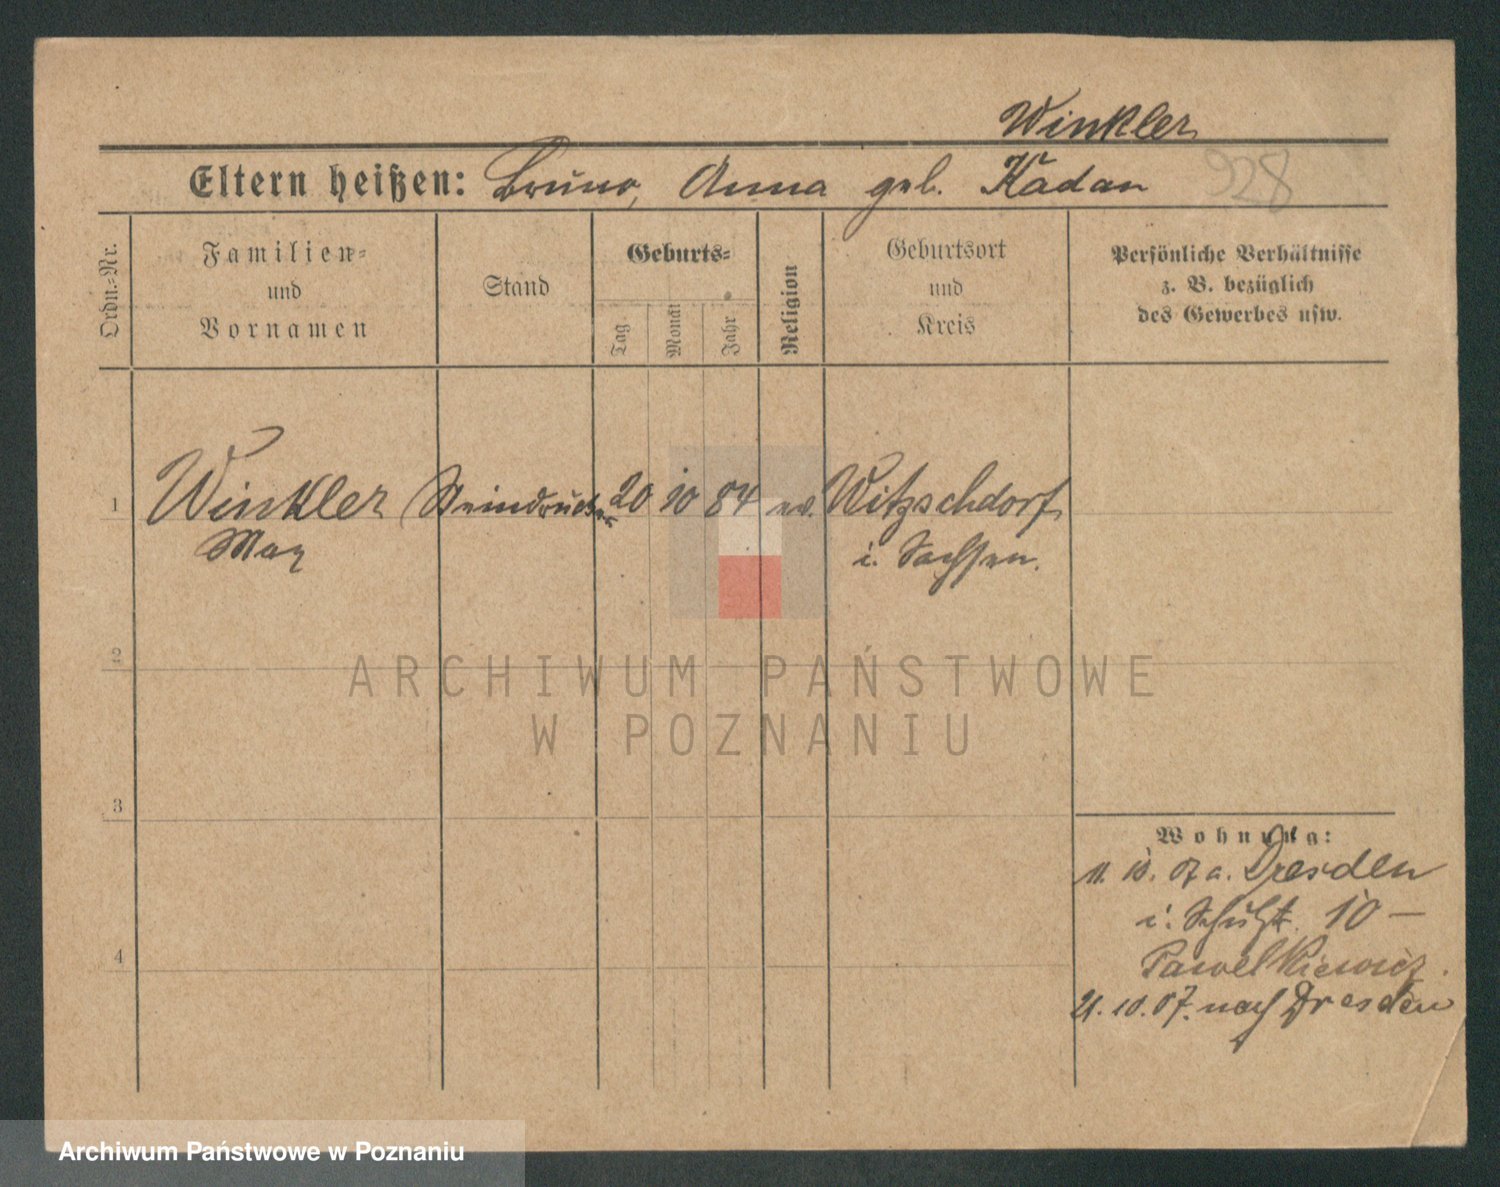 Winkler
Eltern heißen: Bruno, Anna geb. Kadan
928
Ordn.-Nr.
Familien-
und
Vornamen
Stand
Geburts-
Tag
Monat
Jahr
Religion
Geburtsort
und
Kreis
Persönliche Verhältnisse
z. B. bezüglich
des Gewerbes usw.
1 Winkler Steindrucker 20 10 84 ev. Witzschdorf
Max i. Sachsen.
2
ARCHIWUM PAŃSTWOWE
W POZNANIU
3
Wohnung:
11. 10. 07 a. Dresden
i. Schulstr. 10 —
Pawelkiewicz.
4
21. 10. 07. nach Dresden
Archiwum Państwowe w Poznaniu